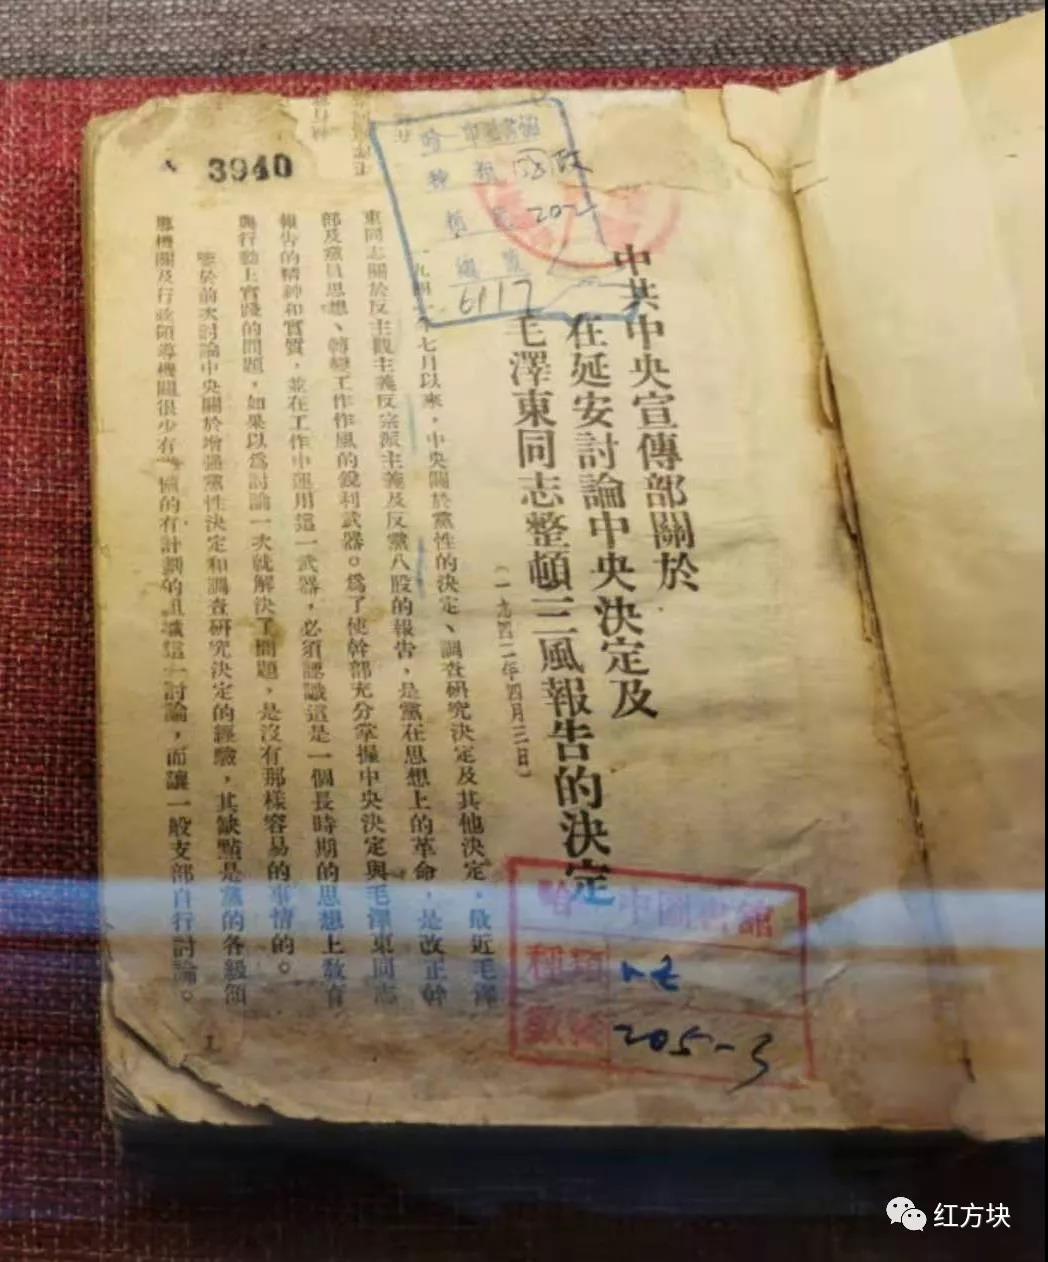 中共中央宣傳部關於
在延安討論中央決定及
毛澤東同志整頓三風報告的決定
(一九四二年四月三日)
一九四一年七月以來，中央關於黨性的決定、調查研究決定及其他決定，最近毛澤
東同志關於反主觀主義反宗派主義及反黨八股的報告，是黨在思想上的革命，是改正幹
部及黨員思想、轉變工作作風的銳利武器。爲了使幹部充分掌握中央決定與毛澤東同志
報告的精神和實質，並在工作中運用這一武器，必須認識這是一個長時期的思想上教育
與行動上實踐的問題，如果以爲討論一次就解決了問題，是沒有那樣容易的事情的。
鑒於前次討論中央關於增強黨性決定和調查研究決定的經驗，其缺點是黨的各級領
導機關及行政領導機關很少有一個的有計劃的組織這一討論，而讓一般支部自行討論。
1
3940
哈 市圖書館
種類
20
號
6117
哈 市圖書館
種類
數號 205-3
红方块